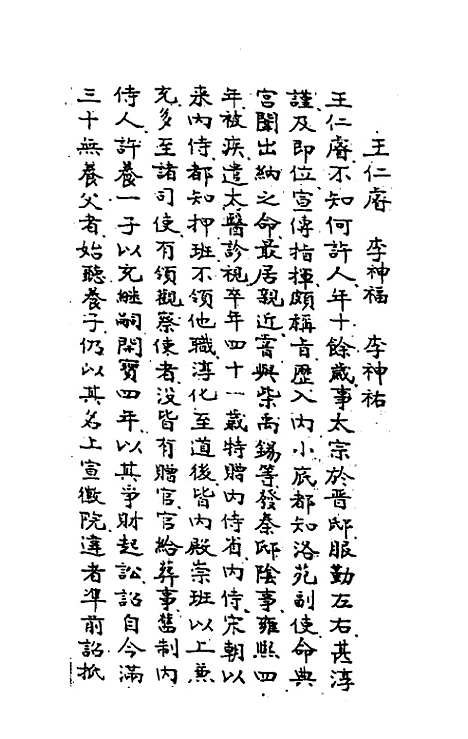 王仁睿　李神福　李神祐
王仁睿不知何許人年十餘歲事太宗於晋邸服勤左右甚淳
謹及即位宣傳指揮頗稱旨歷入内小底都知洛苑副使命典
宮闈出納之命最居親近嘗與柴禹錫等發秦邸陰事雍熙四
年被疾遣太醫診視卒年四十一歲特贈内侍省内侍宋朝以
來内侍都知押班不領他職淳化至道後皆内殿崇班以上兼
充多至諸司使有領觀察使者没皆有贈官官給葬事舊制内
侍人許養一子以充繼嗣開寶四年以其爭財起訟詔自今滿
三十無養父者始聽養子仍以其名上宣徽院違者準前詔抵